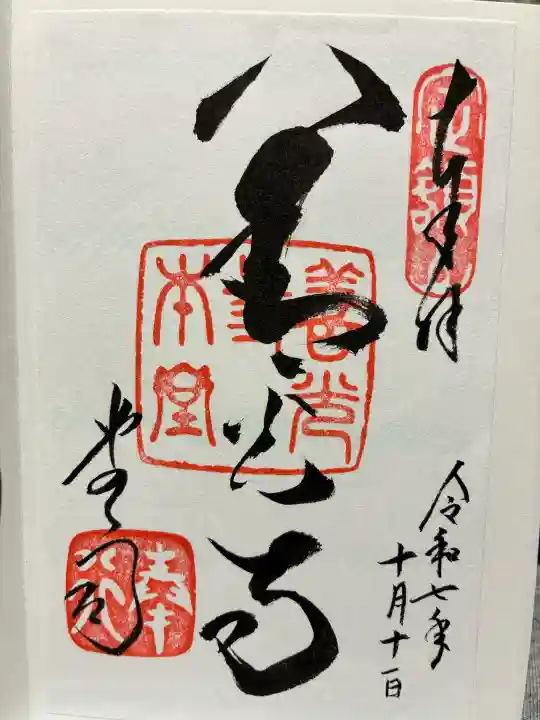 奉拝
善光寺
善光寺
本堂
令和七年
十月十一日
堂司